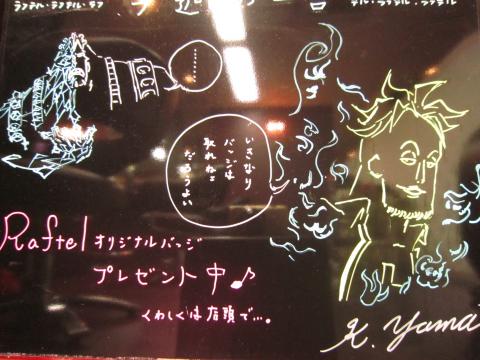 ラフテル・ラフテル・ラフ
テル・ラフテル・ラフテル
………
いきなり
バッジは
取れねェ
だろうよい
Raftel オリジナルバッジ
プレゼント中♪
くわしくは店頭で…。
K. Yama